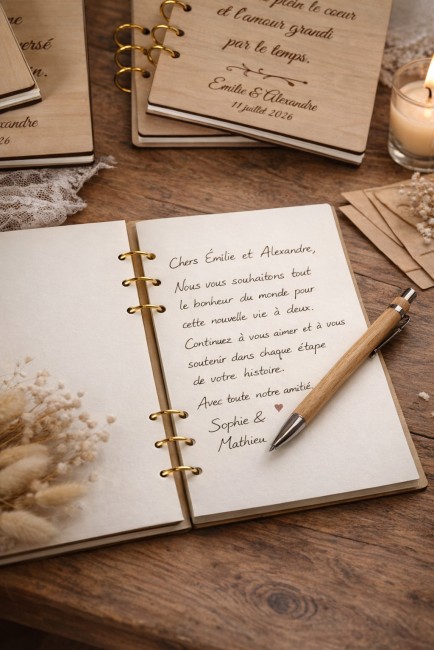 plein le cœur
et l'amour grandi
par le temps.
Emilie & Alexandre
11 juillet 2026
Chers Émilie et Alexandre,
Nous vous souhaitons tout
le bonheur du monde pour
cette nouvelle vie à deux.
Continuez à vous aimer et à vous
soutenir dans chaque étape
de votre histoire.
Avec toute notre amitié,
Sophie &
Mathieu